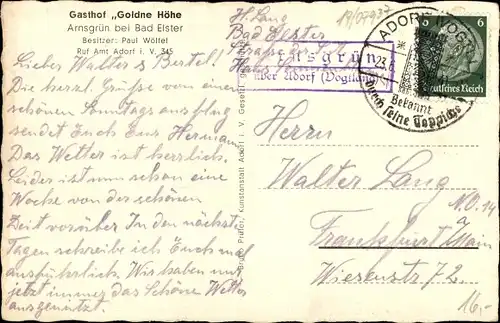 Gasthof „Goldne Höhe
Arnsgrün bei Bad Elster
Besitzer: Paul Wölfel
Ruf Amt Adorf i. V. 345
H. Lang
Bad Elster
Straße der
Haus
14/07937
nsgrün
über Adorf (Vogtland)
ADORF (VOGTL
23.
Bekannt
durch seine Teppiche
6
6
Deutsches Reich
Lieber Walter u Bertel!
Die herzl. Grüße von einem
schönen Sonntagsausflug
sendet Euch Hermann
Das Wetter ist herrlich.
Leider ist nun schon eine
Woche von der schönen
Zeit vorüber In den nächsten
Tagen schreibe ich Euch mal
ausführlich. Wir haben nur
jetzt immer das schöne Wetter
ausgenützt.
Prüfer, Kunstanstalt Adorf i. V. Gesetzl. gesch.
Herrn
Walter Lang
N.O. 14
Frankfurt a Main
Wiesenstr 72
16,-